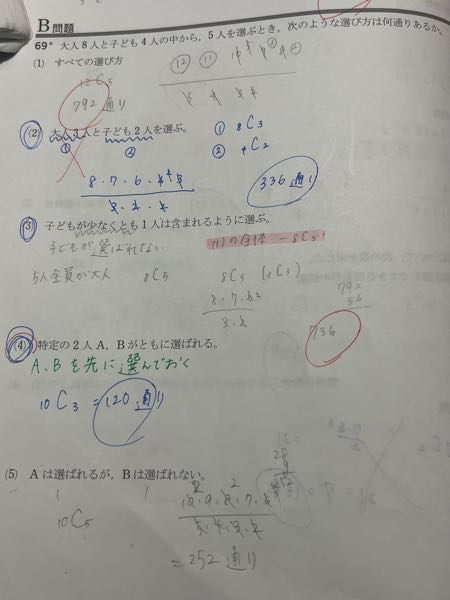 B問題
69* 大人8人と子ども4人の中から，5人を選ぶとき，次のような選び方は何通りあるか。
(1) すべての選び方
12C5
792通り
(2) 大人3人と子ども2人を選ぶ。
① ②
① 8C3
② 4C2
8・7・6・4
336通り
(3) 子どもが少なくとも1人は含まれるように選ぶ。
子どもが選ばれない
(1)の全体 − 8C5!
5人全員が大人 8C5
8C5 (8C3)
8・7・6
3・2
792
56
736
(4) 特定の2人A，Bがともに選ばれる。
A、Bを先に選んでおく
10C3 = 120通り
(5) Aは選ばれるが，Bは選ばれない。
10C5
28
9
252
=252通り